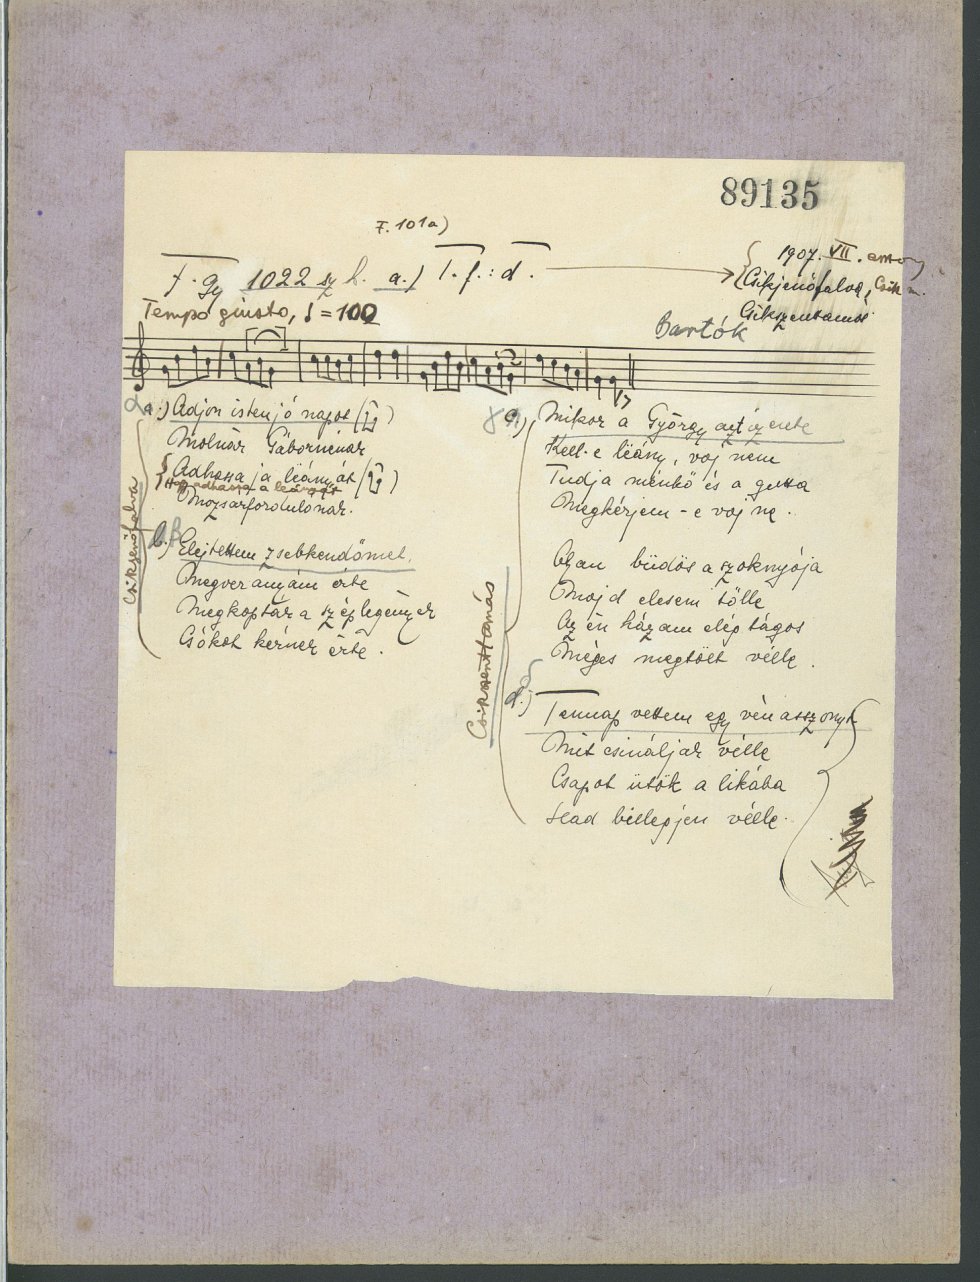 89135
F. 101a)
F. gy 1022 sz b. a.) T. f. : d.
1907. VII.
Csikjenőfalva, Csik m.
Csikszenttamás
Tempo giusto, ♩ = 100
Bartók
a.) Adjon isten jó napot
Molnár Gábornénak
Adhassa ja lëányát
Hogy adhassa a leányát
Mozsárfordulónak.
b.) Elejtettem zsebkendőmet
Megver anyám érte
Megkapták a szép legények
Csókot kérnek érte.
Csikjenőfalva
c.) Mikor a György azt izente
Kell-e lëány, vaj nem
Tudja ménkő és a guta
Megkérjem-e vaj në.
Olyan büdös a szoknyája
Majd elesem tőlle
Az én házam elég tágos
Méges megtölt vélle.
Csikszenttamás
d.) Tennap vettem egy vén asszonyt
Mit csináljak vélle
Csapot ütök a likába
Had billegjen vélle.